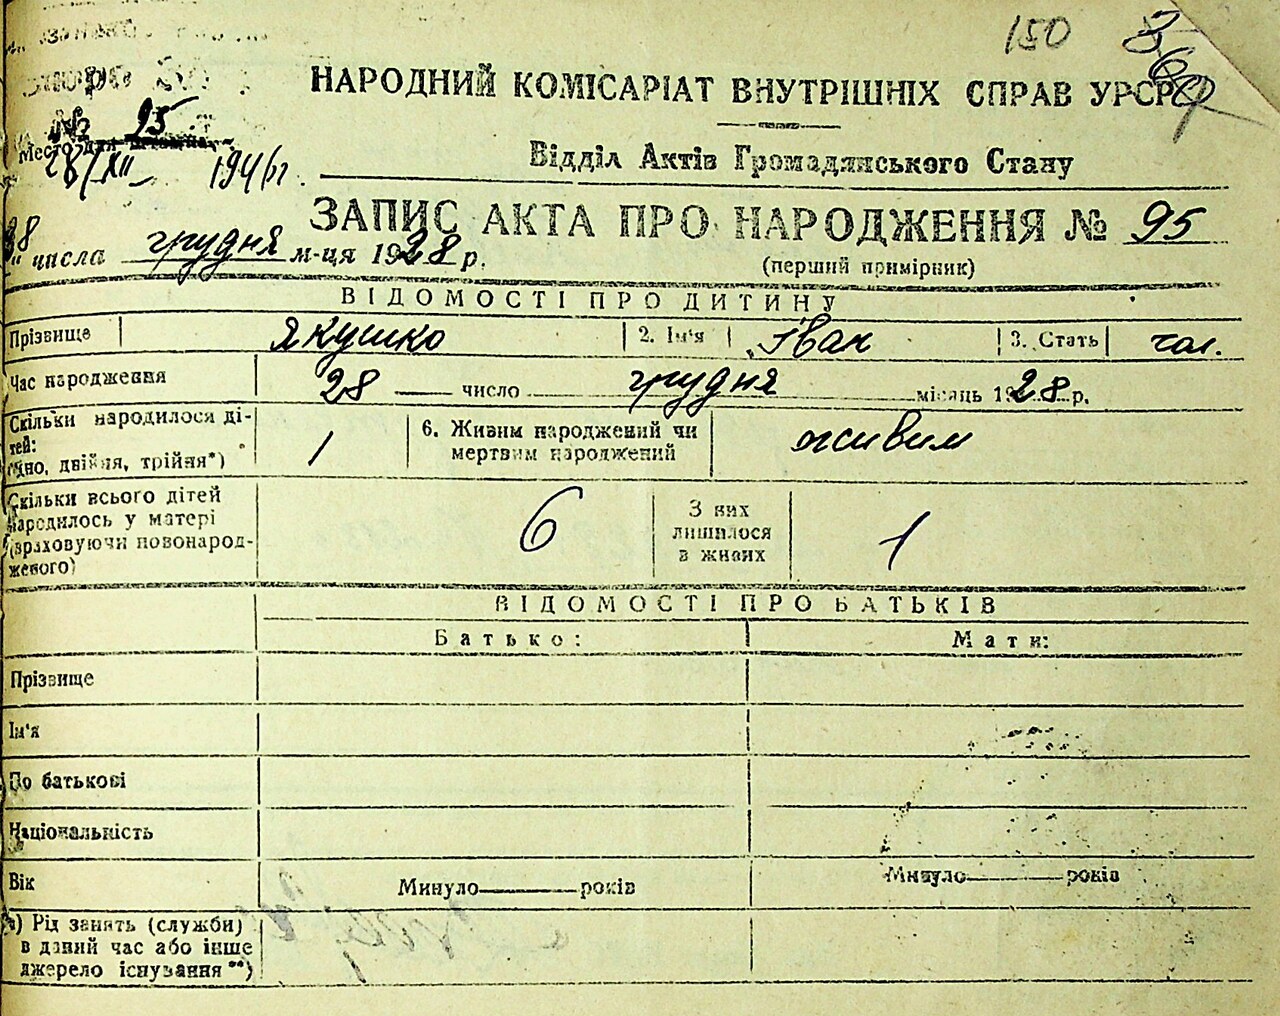 150
НАРОДНИЙ КОМІСАРІАТ ВНУТРІШНІХ СПРАВ УРСР
№ 95
Место для
28/XII 1946г.
Відділ Актів Громадянського Стану
ЗАПИС АКТА ПРО НАРОДЖЕННЯ № 95
28 числа грудня м-ця 1928 р.
(перший примірник)
ВІДОМОСТІ ПРО ДИТИНУ
Прізвище Якушко 2. Ім'я Іван 3. Стать чол.
Час народження 28 число грудня місяць 1928 р.
Скільки народилося ді-
тей:
дно, двійня, трійня*) 1
6. Живим народжений чи
мертвим народжений живим
Скільки всього дітей
народилось у матері
(враховуючи новонарод-
женого) 6
З них
лишилося
в живих 1
ВІДОМОСТІ ПРО БАТЬКІВ
Батько: Мати:
Прізвище
Ім'я
По батькові
Національність
Вік Минуло років Минуло років
) Рід занять (служби)
в даний час або інше
джерело існування **)